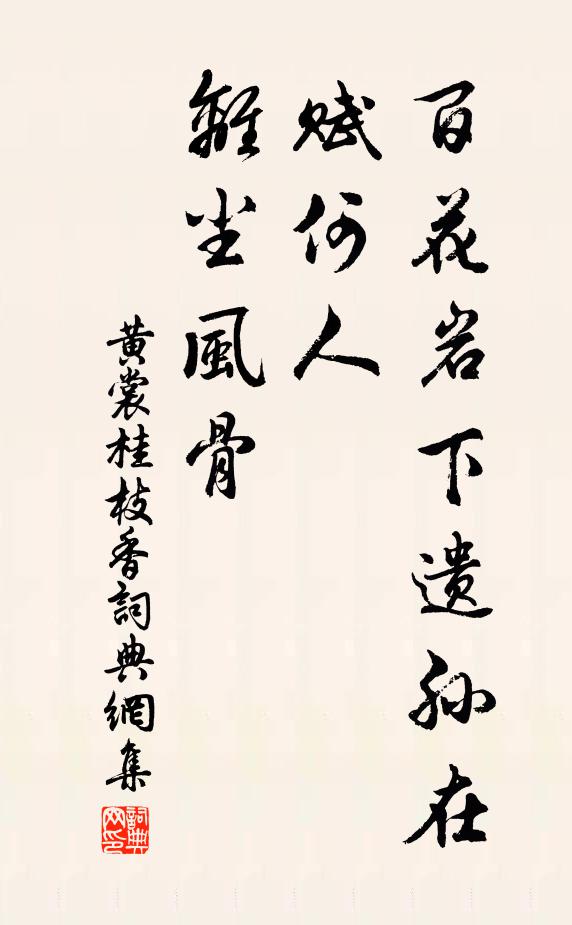 百花岩下遗孙在
赋何人
離尘風骨
黄裳桂枝香詞典網集
詞典网印